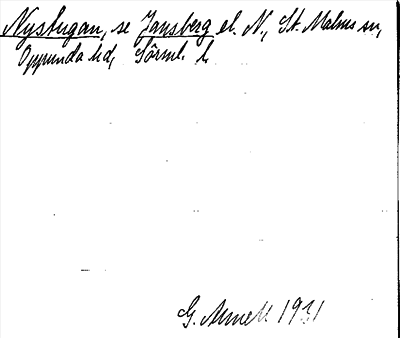 Nystugan, se Jansberg el. N., St. Malms sn,
Oppunda hd, Sörml. l.
G. Annell 1931